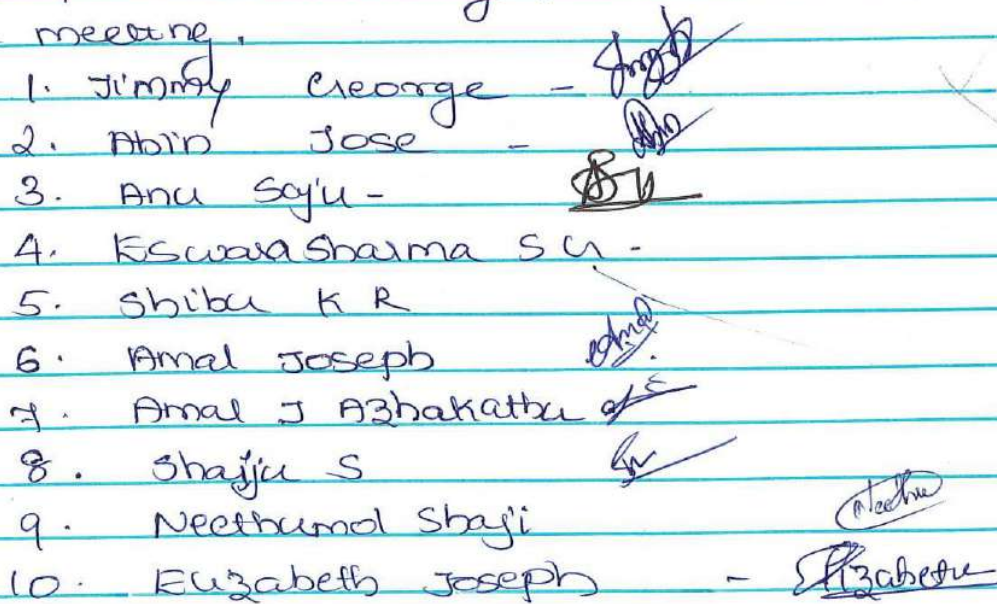 meeting.
1. Jimmy George -
2. Abin Jose -
3. Anu Saju -
4. Eswara Sharma S G -
5. Shibu K R
6. Amal Joseph Amal
7. Amal J Azhakathu
8. Shajju S
9. Neethumol Shaji Neethu
10. Elizabeth Joseph - Elizabeth